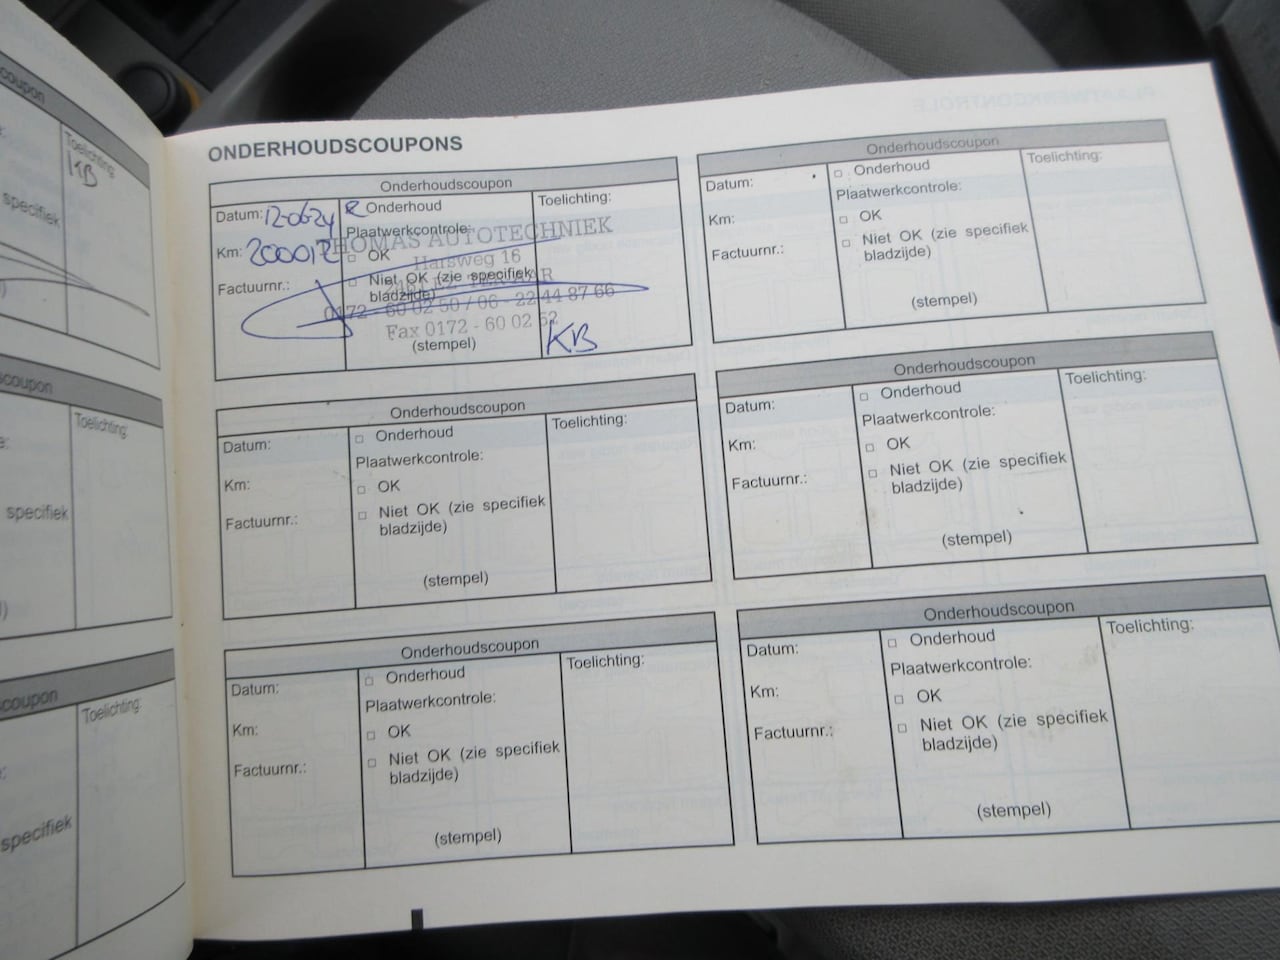 coupon
Toelichting:
KB
specifiek
coupon
Toelichting:
specifiek
coupon
Toelichting:
specifiek
ONDERHOUDSCOUPONS
Onderhoudscoupon
Datum: 12-06-24
Onderhoud
Toelichting:
Plaatwerkcontrole:
THOMAS AUTOTECHNIEK
Km:
OK
16
Factuurnr.:
Niet OK (zie specifiek
bladzijde)
0172 - 60 02 50 / 06 - 22 44 87 66
Fax 0172 - 60 02 52
(stempel)
KB
Onderhoudscoupon
Datum:
Onderhoud
Toelichting:
Plaatwerkcontrole:
Km:
OK
Niet OK (zie specifiek
bladzijde)
Factuurnr.:
(stempel)
Onderhoudscoupon
Datum:
Onderhoud
Toelichting:
Plaatwerkcontrole:
Km:
OK
Factuurnr.:
Niet OK (zie specifiek
bladzijde)
(stempel)
Onderhoudscoupon
Datum:
Onderhoud
Toelichting:
Plaatwerkcontrole:
Km:
OK
Niet OK (zie specifiek
bladzijde)
Factuurnr.:
(stempel)
Onderhoudscoupon
Datum:
Onderhoud
Toelichting:
Plaatwerkcontrole:
Km:
OK
Niet OK (zie specifiek
bladzijde)
Factuurnr.:
(stempel)
Onderhoudscoupon
Datum:
Onderhoud
Toelichting:
Plaatwerkcontrole:
Km:
OK
Niet OK (zie specifiek
bladzijde)
Factuurnr.:
(stempel)